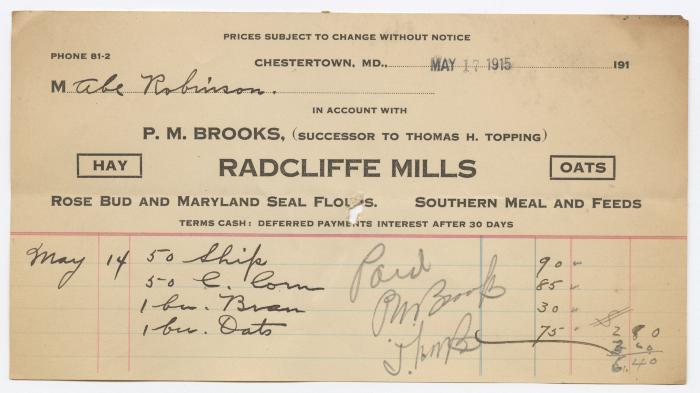 PRICES SUBJECT TO CHANGE WITHOUT NOTICE
PHONE 81-2
CHESTERTOWN, MD., MAY 17 1915 191
M Abe Robinson.
IN ACCOUNT WITH
P. M. BROOKS, (SUCCESSOR TO THOMAS H. TOPPING)
HAY RADCLIFFE MILLS OATS
ROSE BUD AND MARYLAND SEAL FLOURS. SOUTHERN MEAL AND FEEDS
TERMS CASH: DEFERRED PAYMENTS INTEREST AFTER 30 DAYS
May 14 50 Ship 90
50 C. Corn 85
1 bu. Bran 30
1 bu. Oats 75 2 80
Paid
P M Brooks
6.40